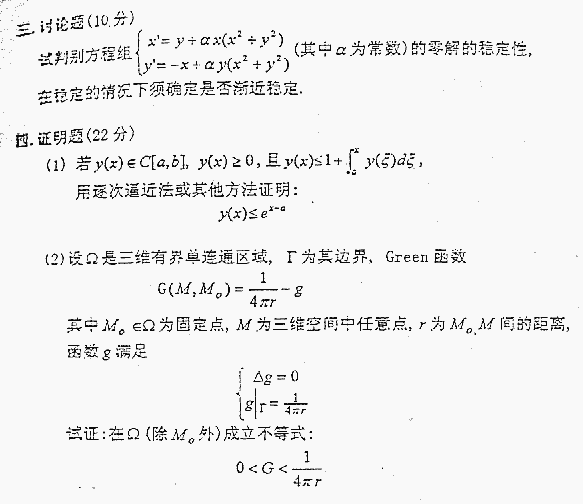 三.讨论题(10分)
试判别方程组 { x'= y+αx(x²+y²)
y'=-x+αy(x²+y²) (其中α为常数)的零解的稳定性,
在稳定的情况下须确定是否渐近稳定.
四.证明题(22分)
(1) 若y(x)∈C[a,b], y(x)≥0,且y(x)≤1+∫ₐˣ y(ξ)dξ,
用逐次逼近法或其他方法证明:
y(x)≤eˣ⁻ᵃ
(2)设Ω是三维有界单连通区域, Γ为其边界、Green函数
G(M,M₀)=1/4πr-g
其中M₀∈Ω为固定点,M为三维空间中任意点,r为M₀、M间的距离,
函数g满足
{ Δg=0
g|Γ=1/4πr
试证:在Ω(除M₀外)成立不等式:
0<G<1/4πr